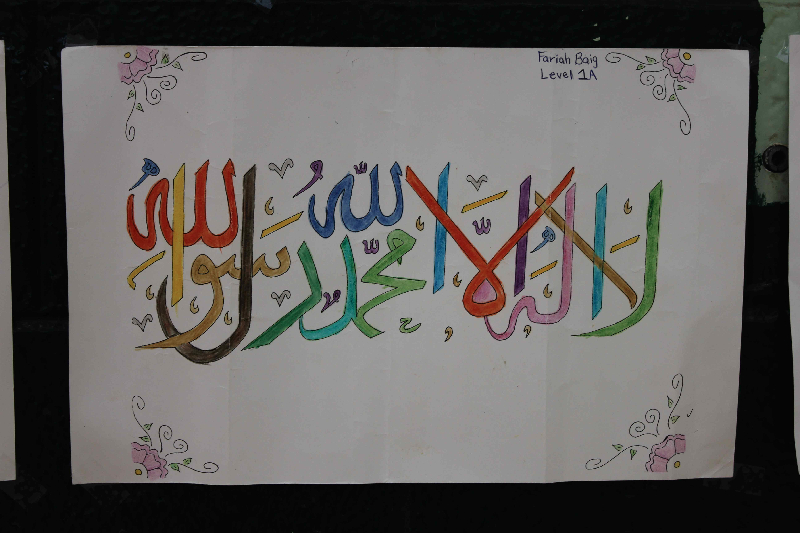 Fariah Baig
Level 1A
لا اله الا الله محمد رسول الله